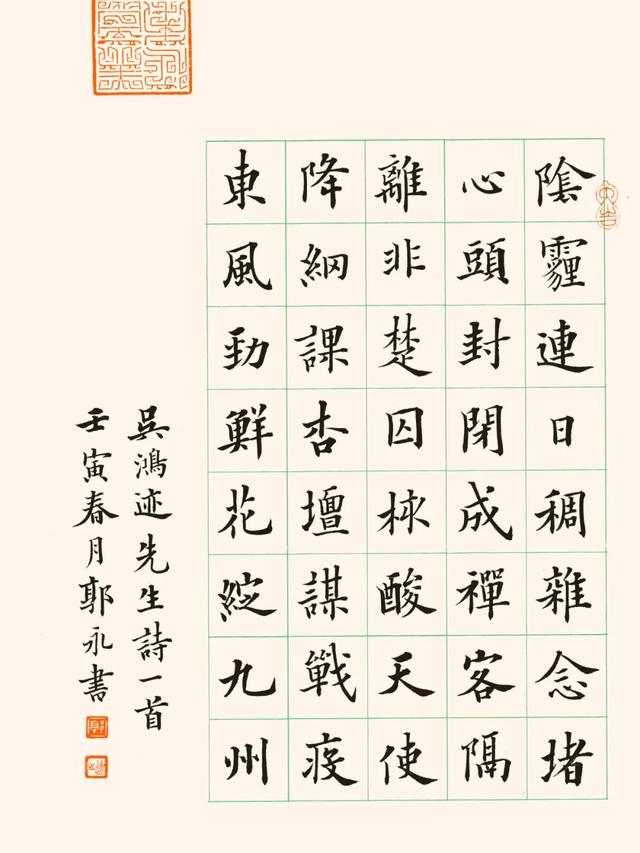 陰霾連日稠雜念堵
心頭封閉成禪客隔
離非楚囚核酸天使
降網課杏壇謀戰疫
東風勁鮮花綻九州
吳鴻迹先生詩一首
壬寅春月郭永書